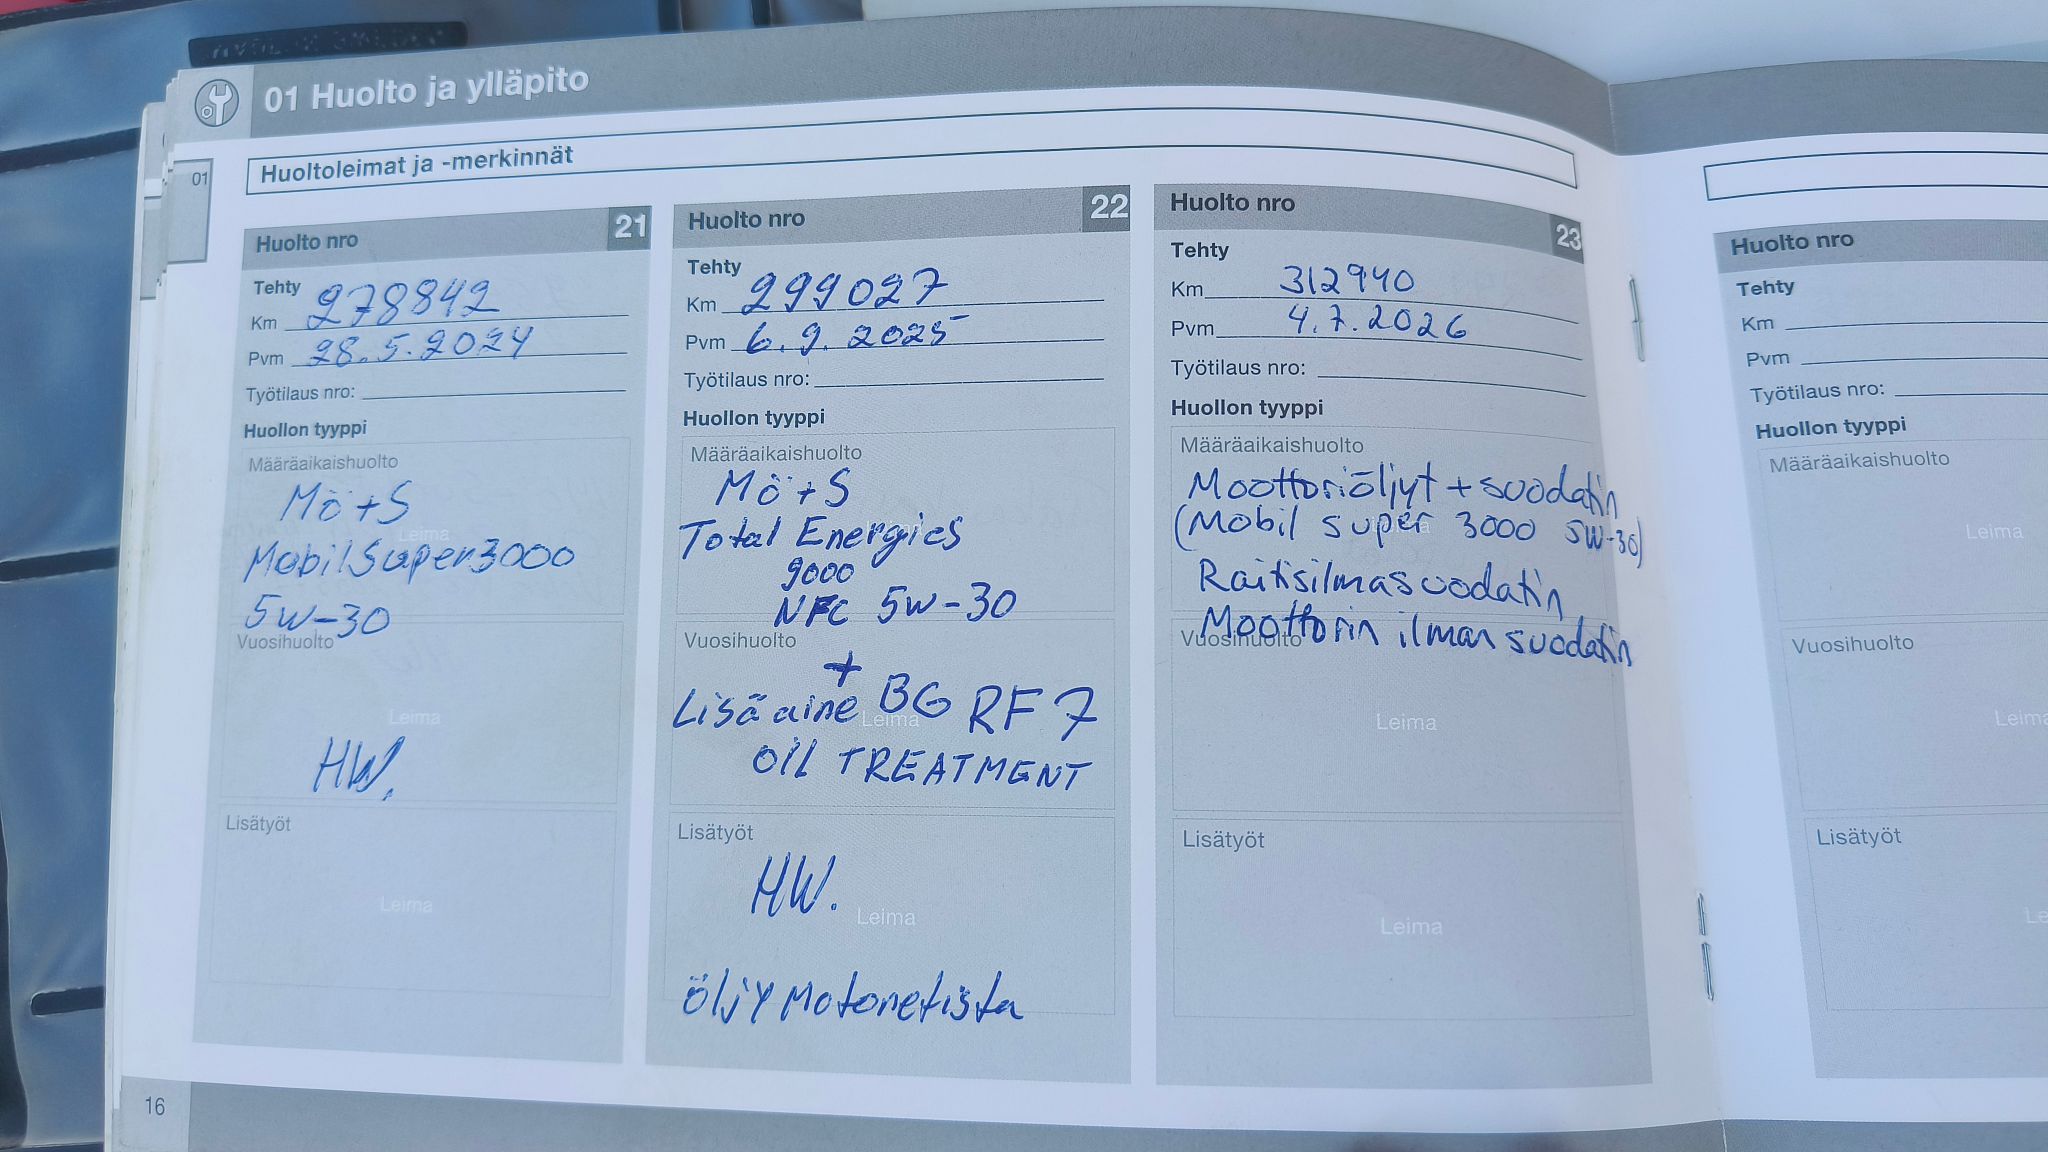 01 Huolto ja ylläpito
01
Huoltoleimat ja -merkinnät
Huolto nro 21
Tehty
Km 278842
Pvm 28.5.2024
Työtilaus nro:
Huollon tyyppi
Määräaikaishuolto
Mö+S
Leima
MobilSuper3000
5w-30
Vuosihuolto
Leima
HW.
Lisätyöt
Leima
Huolto nro 22
Tehty
Km 299027
Pvm 6.9.2025
Työtilaus nro:
Huollon tyyppi
Määräaikaishuolto
Mö+S
Total Energies
9000
NFC 5w-30
Vuosihuolto
+
Lisäaine BG RF 7
Leima
OIL TREATMENT
Lisätyöt
HW.
Leima
öljy Motonetista
Huolto nro 23
Tehty
Km 312940
Pvm 4.7.2026
Työtilaus nro:
Huollon tyyppi
Määräaikaishuolto
Moottoriöljyt + suodatin
(Mobil super 3000 5W-30)
Raitisilmasuodatin
Moottorin ilman suodatin
Vuosihuolto
Leima
Lisätyöt
Leima
Huolto nro
Tehty
Km
Pvm
Työtilaus nro:
Huollon tyyppi
Määräaikaishuolto
Leima
Vuosihuolto
Leima
Lisätyöt
Le
16